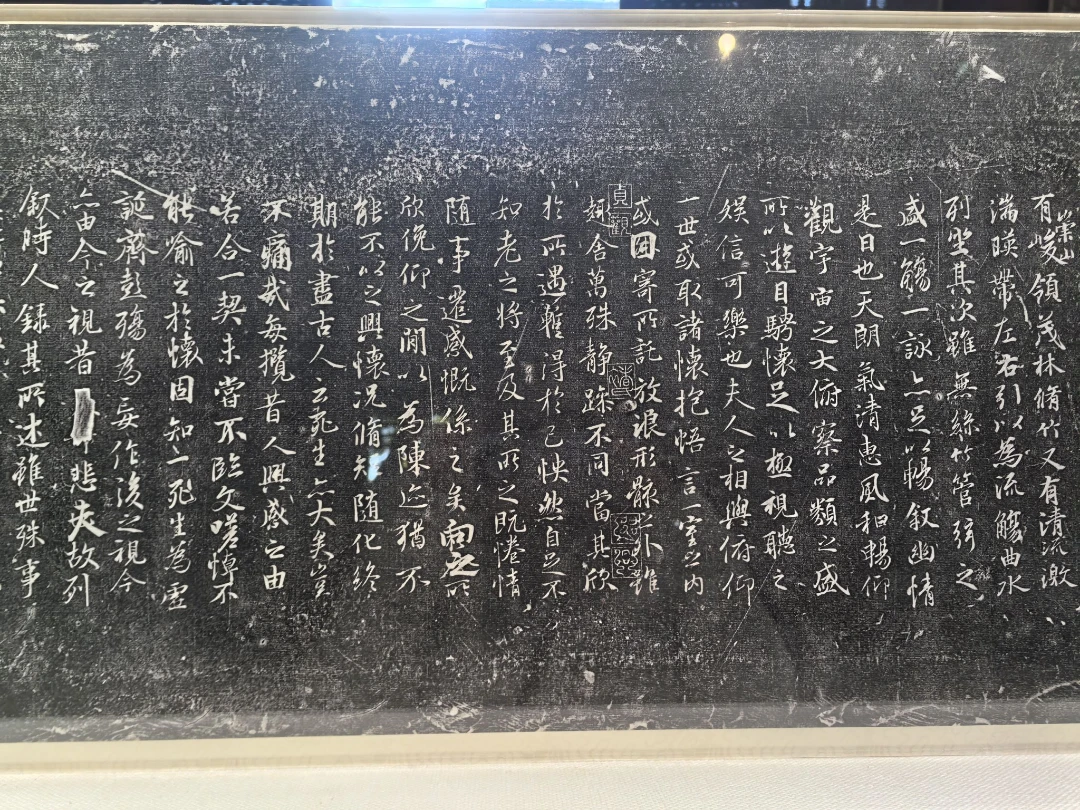 有崇山峻領茂林脩竹又有清流激
湍暎帶左右引以為流觴曲水
列坐其次雖無絲竹管弦之
盛一觴一詠亦足以暢叙幽情
是日也天朗氣清惠風和暢仰
觀宇宙之大俯察品類之盛
所以遊目騁懷足以極視聽之
娛信可樂也夫人之相與俯仰
一世或取諸懷抱悟言一室之內
或因寄所託放浪形骸之外雖
貞觀
趣舍萬殊静躁不同當其欣
於所遇蹔得於己怏然自足不
知老之將至及其所之既惓情
隨事遷感慨係之矣向之所
欣俛仰之閒以為陳迹猶不
能不以之興懷況脩短隨化終
期於盡古人云死生亦大矣豈
不痛哉每攬昔人興感之由
若合一契未嘗不臨文嗟悼不
能喻之於懷固知一死生為虛
誕齊彭殤為妄作後之視今
亦由今之視昔悲夫故列
叙時人録其所述雖世殊事